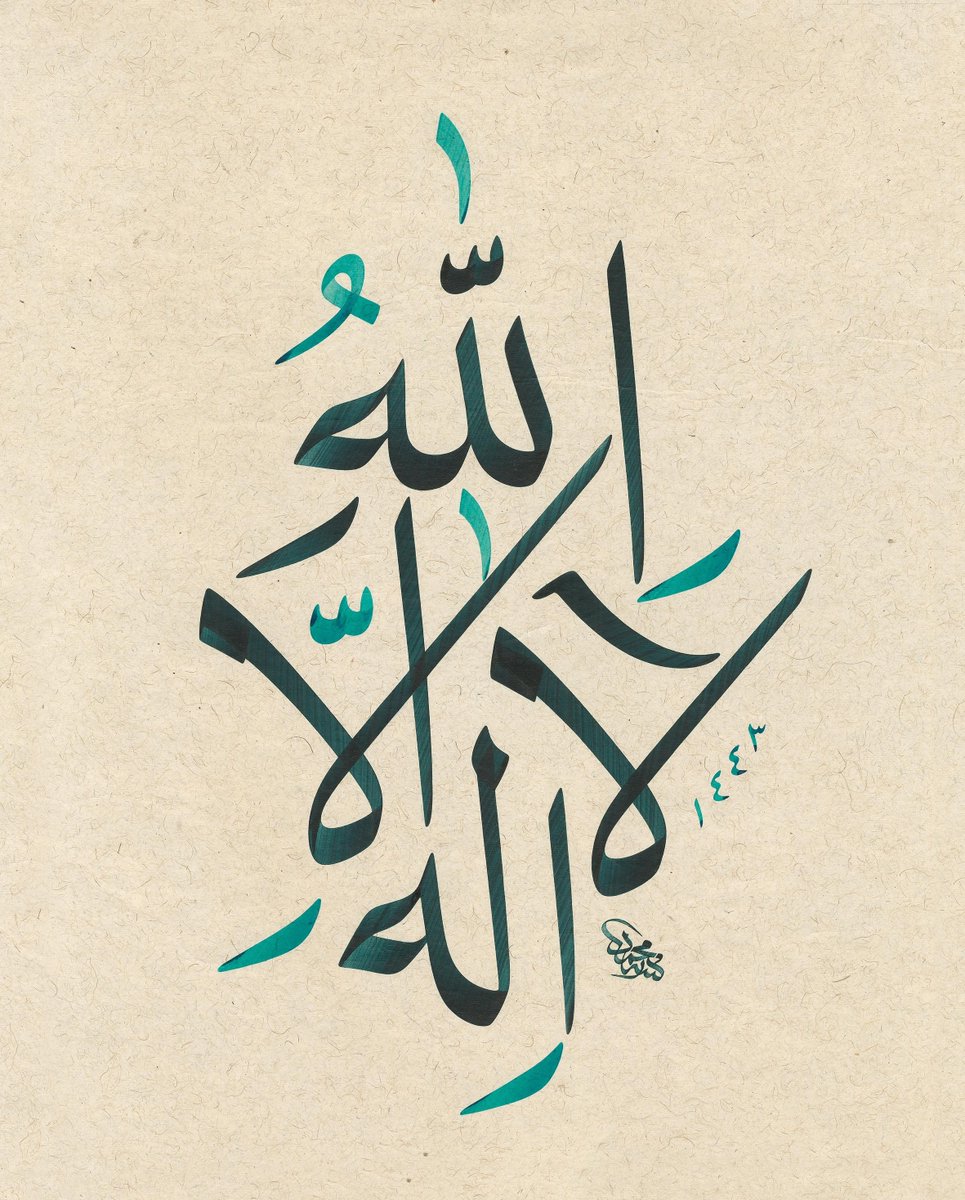 لا إِلٰهَ إِلَّا اللّٰهُ
١٤٤٣